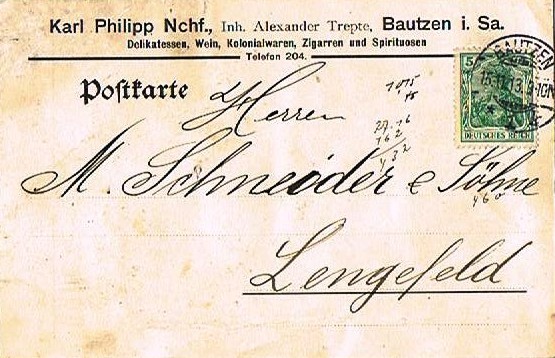 Karl Philipp Nchf., Inh. Alexander Trepte, Bautzen i. Sa.
Delikatessen, Wein, Kolonialwaren, Zigarren und Spirituosen
Telefon 204.
Postkarte
5
BAUTZEN
DEUTSCHES REICH
Herren
M. Schneider & Söhne
Lengefeld